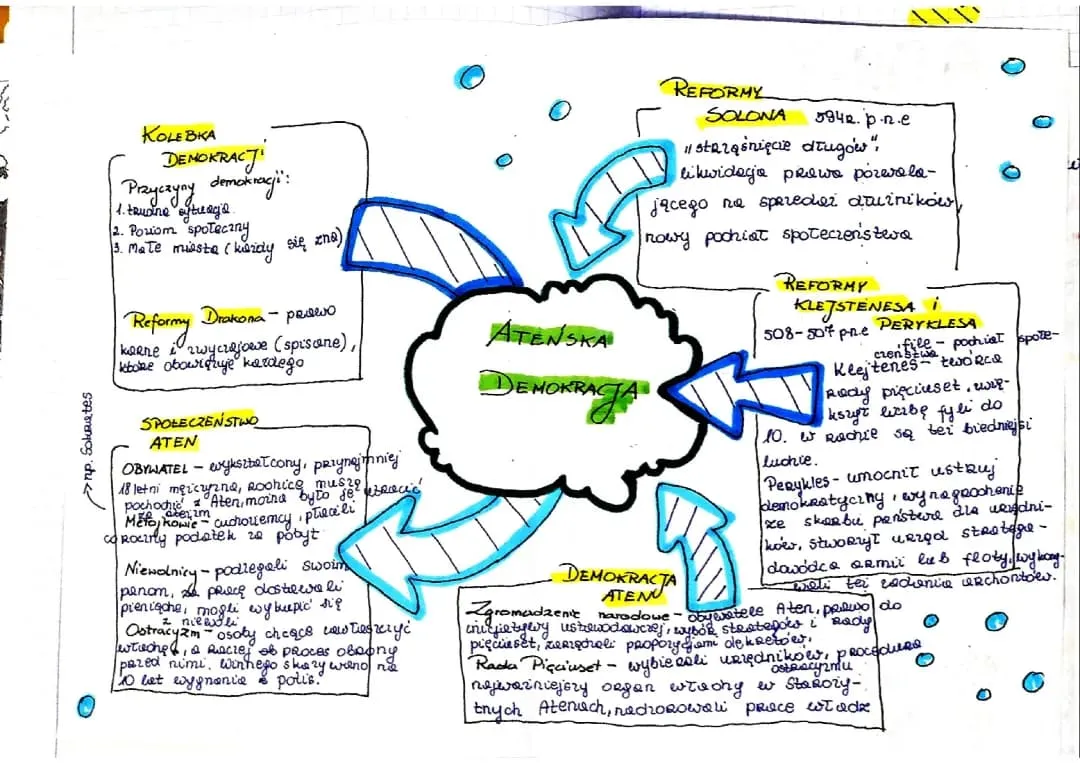 KOLEBKA
DEMOKRACJI
Przyczyny demokracji:
1. trudna sytuacja
2. Poziom społeczny
3. Małe miasta (każdy się zna)
Reformy Drakona - prawo
karne i zwyczajowe (spisane),
które obowiązuje każdego
REFORMY
SOLONA 594r. p.n.e
"strząśnięcie długów",
likwidacja prawa pozwala-
jącego na sprzedaż dłużników,
nowy podział społeczeństwa
ATEŃSKA
DEMOKRACJA
REFORMY
KLEJSTENESA i
PERYKLESA
508-507 p.n.e
file - podział społe-
czeństwa
Klejtenes - twórca
Rady pięciuset, zwię-
kszył liczbę fyli do
10. w radzie są też biedniejsi
ludzie.
Perykles - umocnił ustrój
demokratyczny, wynagrodzenie
ze skarbu państwa dla urzędni-
ków, stworzył urząd stratega -
dowódca armii lub floty, wykony-
wali też zadania archontów.
→ np. Sokrates
SPOŁECZEŃSTWO
ATEN
OBYWATEL - wykształcony, przynajmniej
18 letni mężczyzna, rodzice muszą
pochodzić z Aten, można było je utracić
Metojkowie - cudzoziemcy, płacili
coroczny podatek za pobyt
Niewolnicy - podlegali swoim
panom, za pracę dostawali
pieniądze, mogli wykupić się
z niewoli
Ostracyzm - osoby chcące zawłaszczyć
władzę, a raczej proces obrony
przed nimi. Winnego skazywano na
10 lat wygnania z polis.
DEMOKRACJA
ATEN
Zgromadzenie narodowe - obywatele Aten, prawo do
inicjatywy ustawodawczej, wybór strategów i Rady
pięciuset, zarządzali propozycjami dekretów,
Rada Pięciuset - wybierali urzędników, procedura
ostracyzmu
najważniejszy organ władzy w Staroży-
tnych Atenach, nadzorowali pracę władz